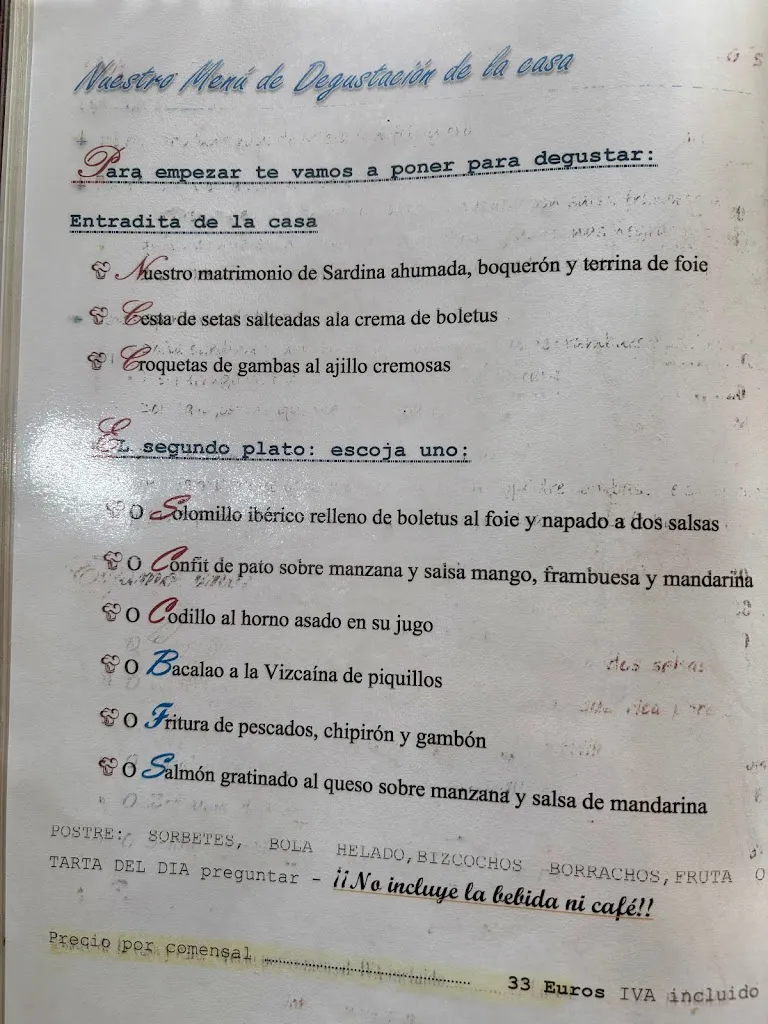 Nuestro Menú de Degustación de la casa
Para empezar te vamos a poner para degustar:
Entradita de la casa
Nuestro matrimonio de Sardina ahumada, boquerón y terrina de foie
Cesta de setas salteadas ala crema de boletus
Croquetas de gambas al ajillo cremosas
EL segundo plato: escoja uno:
O Solomillo ibérico relleno de boletus al foie y napado a dos salsas
O Confit de pato sobre manzana y salsa mango, frambuesa y mandarina
O Codillo al horno asado en su jugo
O Bacalao a la Vizcaína de piquillos
O Fritura de pescados, chipirón y gambón
O Salmón gratinado al queso sobre manzana y salsa de mandarina
POSTRE: SORBETES, BOLA HELADO,BIZCOCHOS BORRACHOS,FRUTA O
TARTA DEL DIA preguntar – ¡¡No incluye la bebida ni café!!
Precio por comensal ........................ 33 Euros IVA incluido